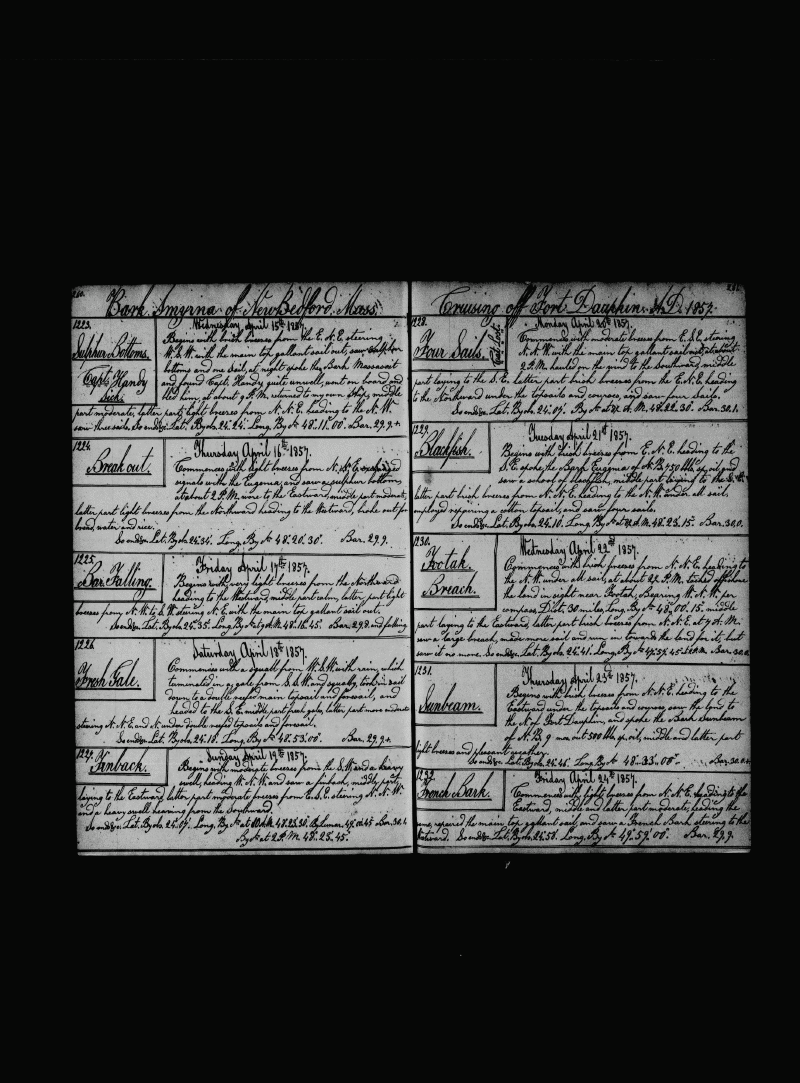 Bark Smyrna of New Bedford Mass.
1223.
Sulphur Bottoms.
Capt. Handy
Sick.
Wednesday April 15th 1857.
Begins with brisk breezes from the E.N.E. steering
W.S.W. with the main top gallant sail out, saw sulphur
bottoms and one Sail, at night spoke the Bark Massasoit
and found Capt. Handy quite unwell, went on board and
bled him, at about 9 P.M. returned to my own Ship, middle
part moderate, latter part light breezes from N.N.E. heading to the N.W.
saw three sails. So ends Lat. By obs. 24.24. Long. By ch. 48.11.00. Bar. 29.9.+
1224.
Break out.
Thursday April 16th 1857.
Commences with light breezes from N.
signals with the Eugenia, and saw a sulphur bottom,
at about 2 P.M. wore to the Eastward, middle part moderate,
latter part light breezes from the Northward heading to the Westward, broke out for
bread, water and rice.
So ends Lat. By obs. 24.34. Long. By ch. 48.20.30. Bar. 29.9.
1225.
Bar. Falling.
Friday April 17th 1857.
Begins with very light breezes from the Northward
heading to the Westward, middle part calm, latter part light
breezes from N.W. to S.W. steering N.E. with the main top gallant sail out.
So ends Lat. By obs. 24.35. Long. By ch. at 9 A.M. 48.18.45. Bar. 29.8 and falling
1226.
Fresh Gale.
Saturday April 18th 1857.
Commences with a squall from W.S.W. with rain, which
terminated in a gale from S.S.W. and squally, took in sail
down to a double reefed main topsail and foresail, and
headed to the S.E. middle part fresh gales, latter part more moderate
steering N.N.E. and N. under double reefed topsails and foresail.
So ends Lat. By obs. 24.18. Long. By ch. 48.53.00. Bar. 29.9.+
1227.
Finback.
Sunday April 19th 1857.
Begins with moderate breezes from the S.W. and a heavy
swell, heading W.N.W. and saw a finback, middle part
laying to the Eastward, latter part moderate breezes from E.S.E. steering N.N.W.
and a heavy swell heaving from the Southward.
So ends Lat. By obs. 24.07. Long. By ch. at A.M. 48.23.30. By Lunar. 49.01.45 Bar. 30.1.
By ch. at 2 P.M. 48.23.45.
Cruising off Fort Dauphin A.D. 1857.
1228.
Four Sails.
Monday April 20th 1857.
Commences with moderate breezes from E.S.E. steering
N.N.W. with the main top gallant sail out, at about
2 P.M. hauled on the wind to the Southward, middle
part laying to the S.E. latter part brisk breezes from the E.N.E. heading
to the Northward under the topsails and courses, and saw four sails.
So ends Lat. By obs. 24.09. By ch. A.M. 48.22.30. Bar. 30.1.
1229.
Blackfish.
Tuesday April 21st 1857.
Begins with brisk breezes from E.N.E. heading to the
S.E. spoke the Bark Eugenia of N.B. 450 bbls sp. oil and
saw a school of blackfish, middle part laying to the
latter part brisk breezes from N.N.E. heading to the N.W. under all sail,
employed repairing a cotton topsail, and saw four sails.
So ends Lat. By obs. 24.10. Long. By ch. at A.M. 48.23.15. Bar. 30.0.
1230.
Footak.
Breach.
Wednesday April 22nd 1857.
Commences with brisk breezes from N.N.E. heading to
the N.W. under all sail, at about 2½ P.M. tacked offshore
the land in sight near Footak, Bearing W.N.W. per
compass, Dist. 30 miles, Long. By ch. 48.00.15. middle
part laying to the Eastward, latter part brisk breezes from N.N.E. at 7 A.M.
saw a large breach, made more sail and run in towards the land for it, but
saw it no more. So ends Lat. By obs. 24.41. Long. By ch. 47.57.45 Bar. 30.0
1231.
Sunbeam.
Thursday April 23rd 1857.
Begins with brisk breezes from N.N.E. heading to the
Eastward under the topsails and courses, saw the land to
the N. of Fort Dauphin, and spoke the Bark Sunbeam
of N.B. 9 mos. out 500 bbls sp. oil, middle and latter part
light breezes and pleasant weather.
So ends Lat. By obs. 24.46. Long. By ch. 48.33.00. Bar. 30.0.+
1232.
French Bark.
Friday April 24th 1857.
Commences with light breezes from N.N.E. heading to the
Eastward, middle and latter part moderate, heading the
same, repaired the main top gallant sail, and saw a French Bark steering to the
Westward. So ends Lat. By obs. 24.58. Long. By ch. 47.57.00. Bar. 29.9.